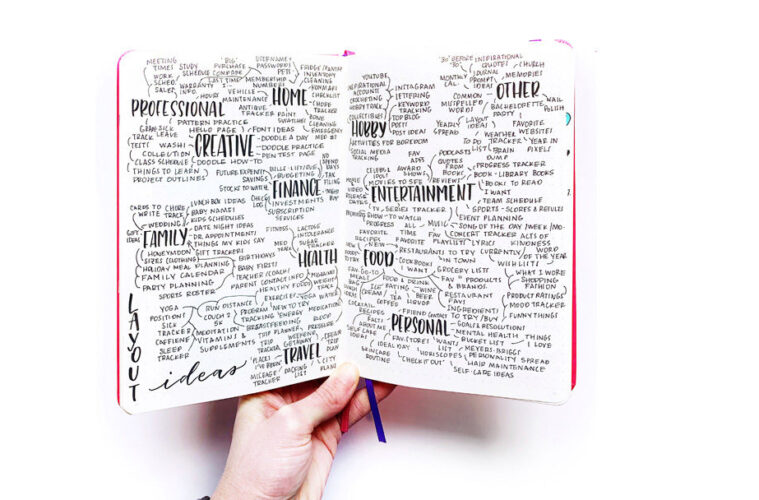 MEETING
TIMES
WORK
SCHED.
SALES
STUDY
SCHEDULE
"BIG"
PURCHASE
COMPARE
LAST TIME
I...
WARRANTY
INFO.
HOURS
VEHICLE
MAINTENANCE
USERNAME +
PASSWORDS
PETS
MEMBERSHIP
NUMBERS
INVENTORY
CLEANING
CHECKLIST
CHORE
TRACKER
HOME
PROFESSIONAL
ANTIQUE
TRACKER
PAINT
SWATCHES
CLEANING
EMERGENCY
PATTERN PRACTICE
HELLO PAGE
FONT IDEAS
SICK
LEAVE
TRACK
WASHI
COLLECTION
CREATIVE
DOODLE A DAY
DOODLE PRACTICE
PEN TEST PAGE
CLASS SCHEDULE
DOODLE HOW-TO
THINGS TO LEARN
PROJECT OUTLINES
FUTURE EXPENSE
SAVINGS
STOCKS TO WATCH
BUDGETING
NO
SPEND
DAYS
TAX
FILING
FINANCE
INVESTMENTS
SUBSCRIPTION
SERVICES
LUNCH BOX IDEAS
CHECK
LOG
CARDS TO
WRITE
CHORE
TRACK
WEDDING
GIFT
IDEAS
BABY NAMES
KIDS SCHEDULES
DATE NIGHT IDEAS
DR. APPOINTMENTS
THINGS MY KIDS SAY
FAMILY
GIFT TRACKERS
HONEYMOON
SIZES (CLOTHING)
HOLIDAY MEAL PLANNING
FAMILY CALENDAR
PARTY PLANNING
SPORTS ROSTER
BIRTHDAYS
BABY FIRSTS
TEACHER/COACH
PARENT CONTACT INFO
FITNESS
LACTOSE
INTOLERANCE
SUGAR
TRACKER
MED
HEALTH
HEALTHY FOODS
WEIGHT
TRACK
EXERCISES
YOGA
WATER
YOGA
POSITIONS
SICK
TRACKER
CAFFEINE
SLEEP
TRACKER
RUN DISTANCE
COUCH TO
5K
MEDITATION
VITAMINS &
SUPPLEMENTS
PROGRAM
TRACKING
NEW TO TRY
ENERGY
MEDICATION
BREASTFEEDING
BLOOD
PRESSURE
TRIP
TRACKER
TRIP PLANNER
WEEKEND
GETAWAY
TRIP
PLAN
TRAVEL
"PLACES
I'VE BEEN"
MILEAGE
TRACKER
PACKING
LIST
CITY
PLANS
LAYOUT
ideas
YOUTUBE
INSPIRATIONAL
ACCOUNTS
CROCHETING
HOBBY TRACK
COLLECTIBLES
INSTAGRAM
LETTERING
KEYWORD
TRACKING
TOP BLOG
POSTS
POST IDEAS
HOBBY
ACTIVITIES FOR BOREDOM
SOCIAL MEDIA
TRACKING
"30 BEFORE
30"
INSPIRATIONAL
QUOTES
CHURCH
MONTHLY
CAL.
JOURNAL
PROMPT
MEMORIES
OTHER
COMMON
MISSPELLED
WORDS
BACHELORETTE
PARTY
WALL
POLISH
YEARLY
SPREAD
LAYOUT
IDEAS
FAVORITE
WEBSITES
WEATHER
TRACKER
YEAR IN
PIXELS
TO DO
LISTS
BRAIN
DUMP
FAV
APPS
AWARD
SHOWS
PODCASTS
QUOTES
FROM
BOOKS
PROGRESS TRACKER
BOOK - LIBRARY BOOKS
MOVIES TO SEE
REVIEWS
BOOKS TO READ
I WANT
MOVIE
RELEASE
DATES
ENTERTAINMENT
TEAM SCHEDULE
SPORTS - SCORES & RESULTS
TV
SERIES TRACKER
SHOW TO WATCH
PROGRESS
ALL
TIME FAV
MUSIC
EVENT PLANNING
SONG OF THE DAY/WEEK/MO
CONCERT TRACKER
ACTS OF
KINDNESS
FAVORITE
RECIPES
FAVORITE
PLAYLISTS
LYRICS
NEW
RESTAURANTS TO TRY
CURRENTLY
WORD
OF THE YEAR
FOOD
COOKBOOKS
I WANT
IN TOWN
WISH LISTS
GROCERY LISTS
WHAT I WORE
SHOPPING
FASHION
FOOD & DRINK
FAV
PRODUCTS
& BRANDS
ICE
CREAM
EATING
TEA
COFFEE
WINE
BEER
LIQUOR
RESTAURANT
FAVS
INGREDIENTS
TO TRY/BUY
PRODUCT RATINGS
MOOD TRACKER
FUNNY THINGS
COCKTAIL
RECIPES
FACTS
ABOUT ME
SELF CARE
IDEAS
FRIEND CONTACT
PERSONAL
GOALS
RESOLUTIONS
MENTAL HEALTH
THINGS
I LOVE
FAV. STORES
WANTS
LIST
BUCKET LIST
IDEAL DAY
MEYERS-BRIGGS
HOROSCOPES
PERSONALITY SPREAD
SKINCARE
ROUTINE
CHECK IT OUT
HAIR MAINTENANCE
SELF-CARE IDEAS